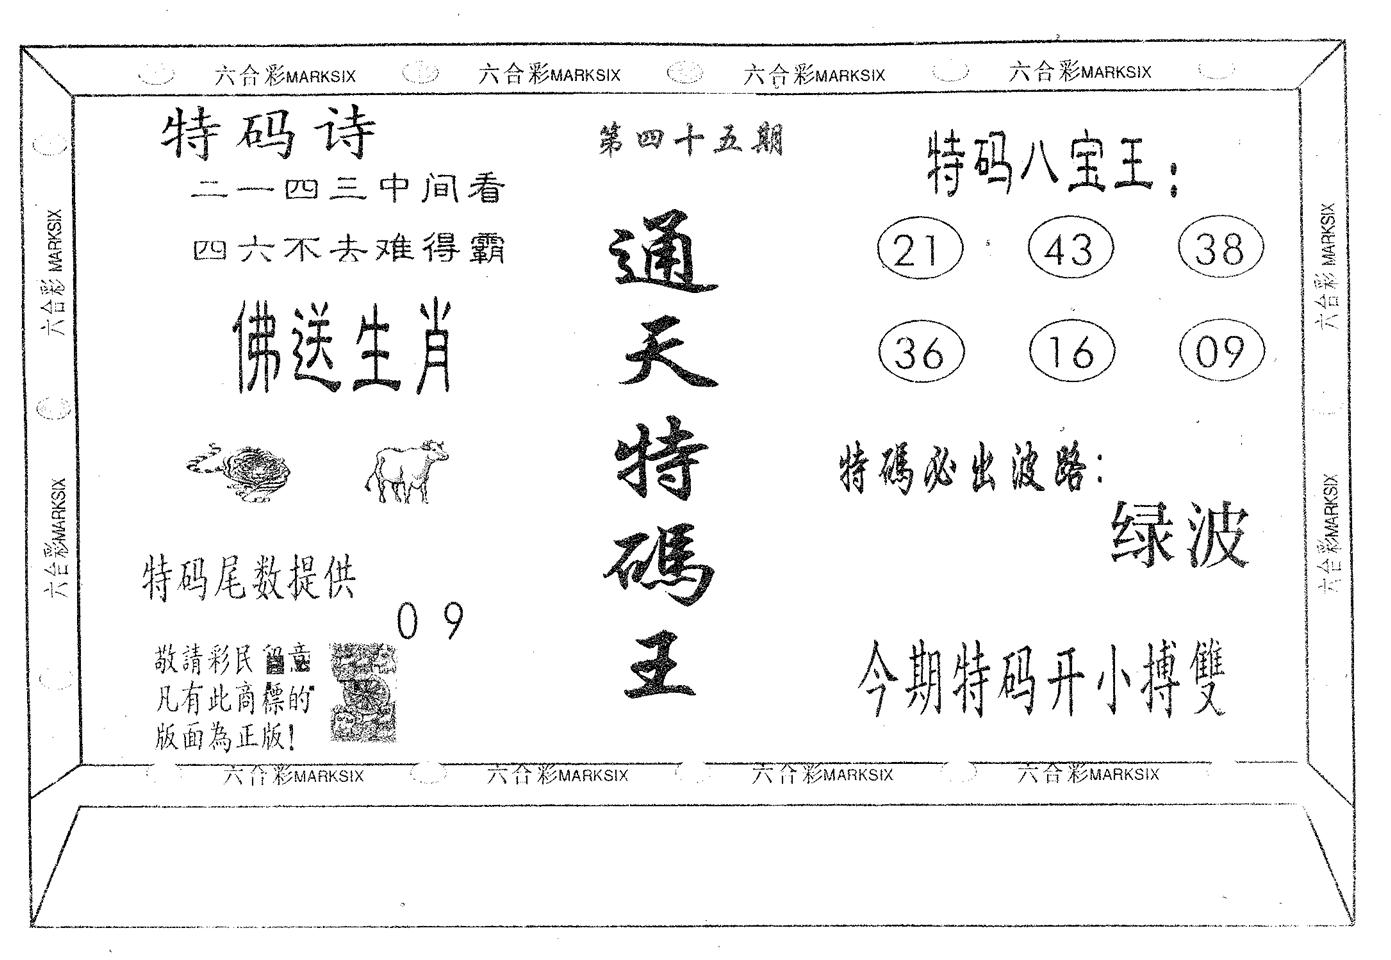 六合彩MARKSIX 六合彩MARKSIX 六合彩MARKSIX 六合彩MARKSIX
六合彩 MARKSIX
六合彩MARKSIX
特码诗
二一四三中间看
四六不去难得霸
佛送生肖
特码尾数提供
0 9
敬請彩民留意
凡有此商標的
版面為正版!
第四十五期
通天特碼王
特码八宝王:
21 43 38
36 16 09
特碼必出波路:
绿波
今期特码开小搏雙
六合彩 MARKSIX
六合彩MARKSIX
六合彩MARKSIX 六合彩MARKSIX 六合彩MARKSIX 六合彩MARKSIX